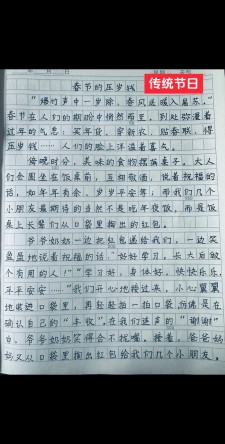 年 月 日
传统节日
春节的压岁钱
"爆竹声中一岁除,春风送暖入屠苏。"
春节在人们的期盼中悄然而至,到处弥漫着
过年的气息:买年货、穿新衣、贴春联、得
压岁钱……人们的脸上洋溢着喜气。
傍晚时分,美味的食物摆满桌子。大人
们会围坐在饭桌前,互相敬酒,说着祝福的
话,如年年有余、岁岁平安等;而我们几个
小朋友最期待的当然不是吃年夜饭,而是饭
桌上长辈们从口袋里掏出的红包。
爷爷奶奶一边把红包递给我们,一边笑
盈盈地说着祝福的话:"好好学习,长大后做
个有用的人!""学习好,身体好,快快乐乐,
平平安安……"我们开心地接过来,小心翼翼
地装进口袋里,再轻轻拍一拍口袋,仿佛是在
确认自己的"丰收"。在我们连声的"谢谢"
中,爷爷奶奶笑得合不拢嘴。接着,爸爸妈
妈又从口袋里掏出红包给我们几个小朋友。